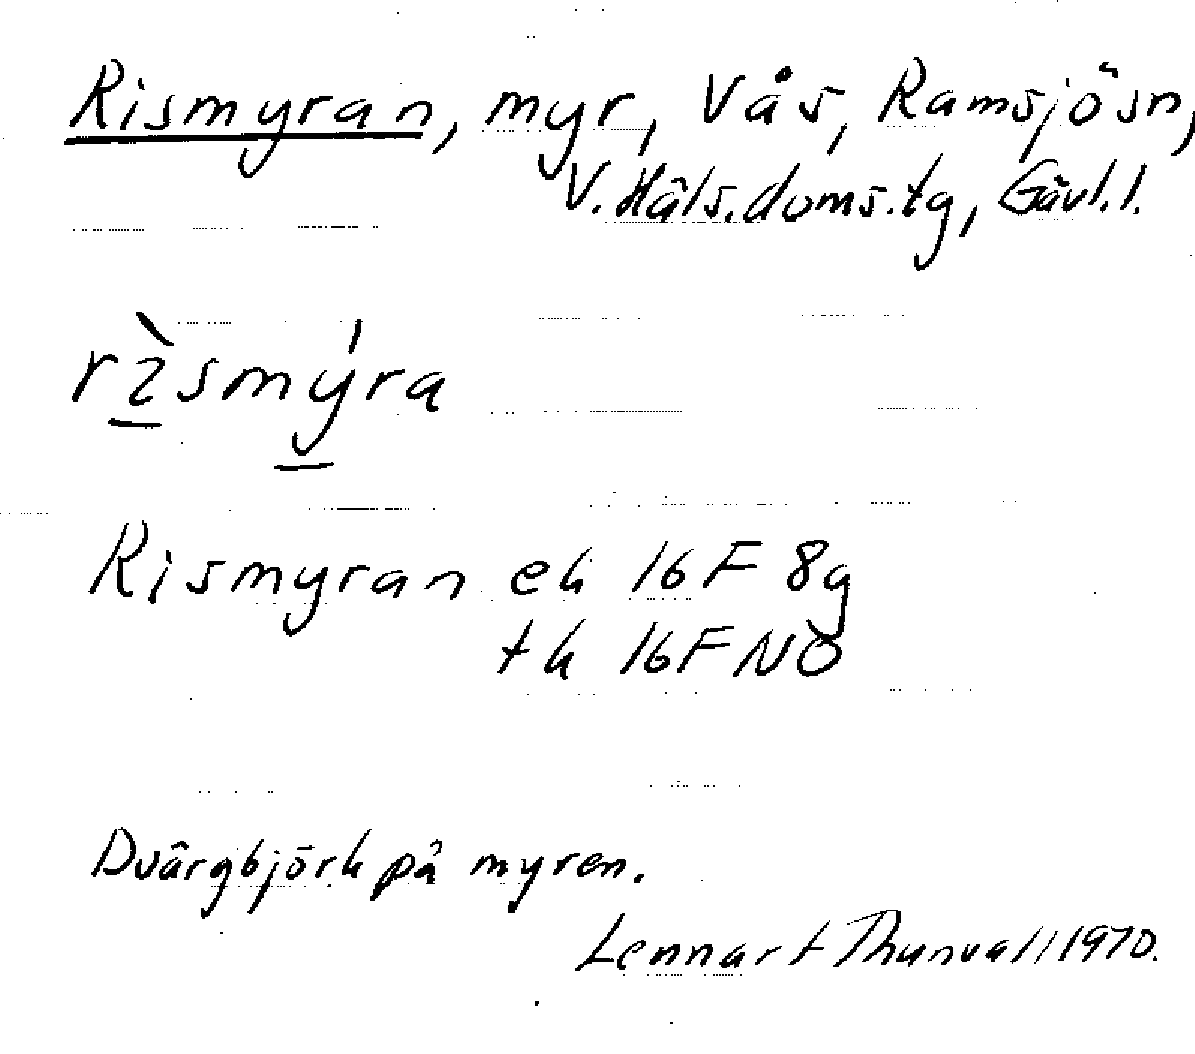 Rismyran, myr, Vås, Ramsjösn,
V. Häls. doms. tg, Gävl. l.
rìsmýra
Rismyran ek 16F 8g
tk 16F NÖ
Dvärgbjörk på myren.
Lennart Thunvall 1970.